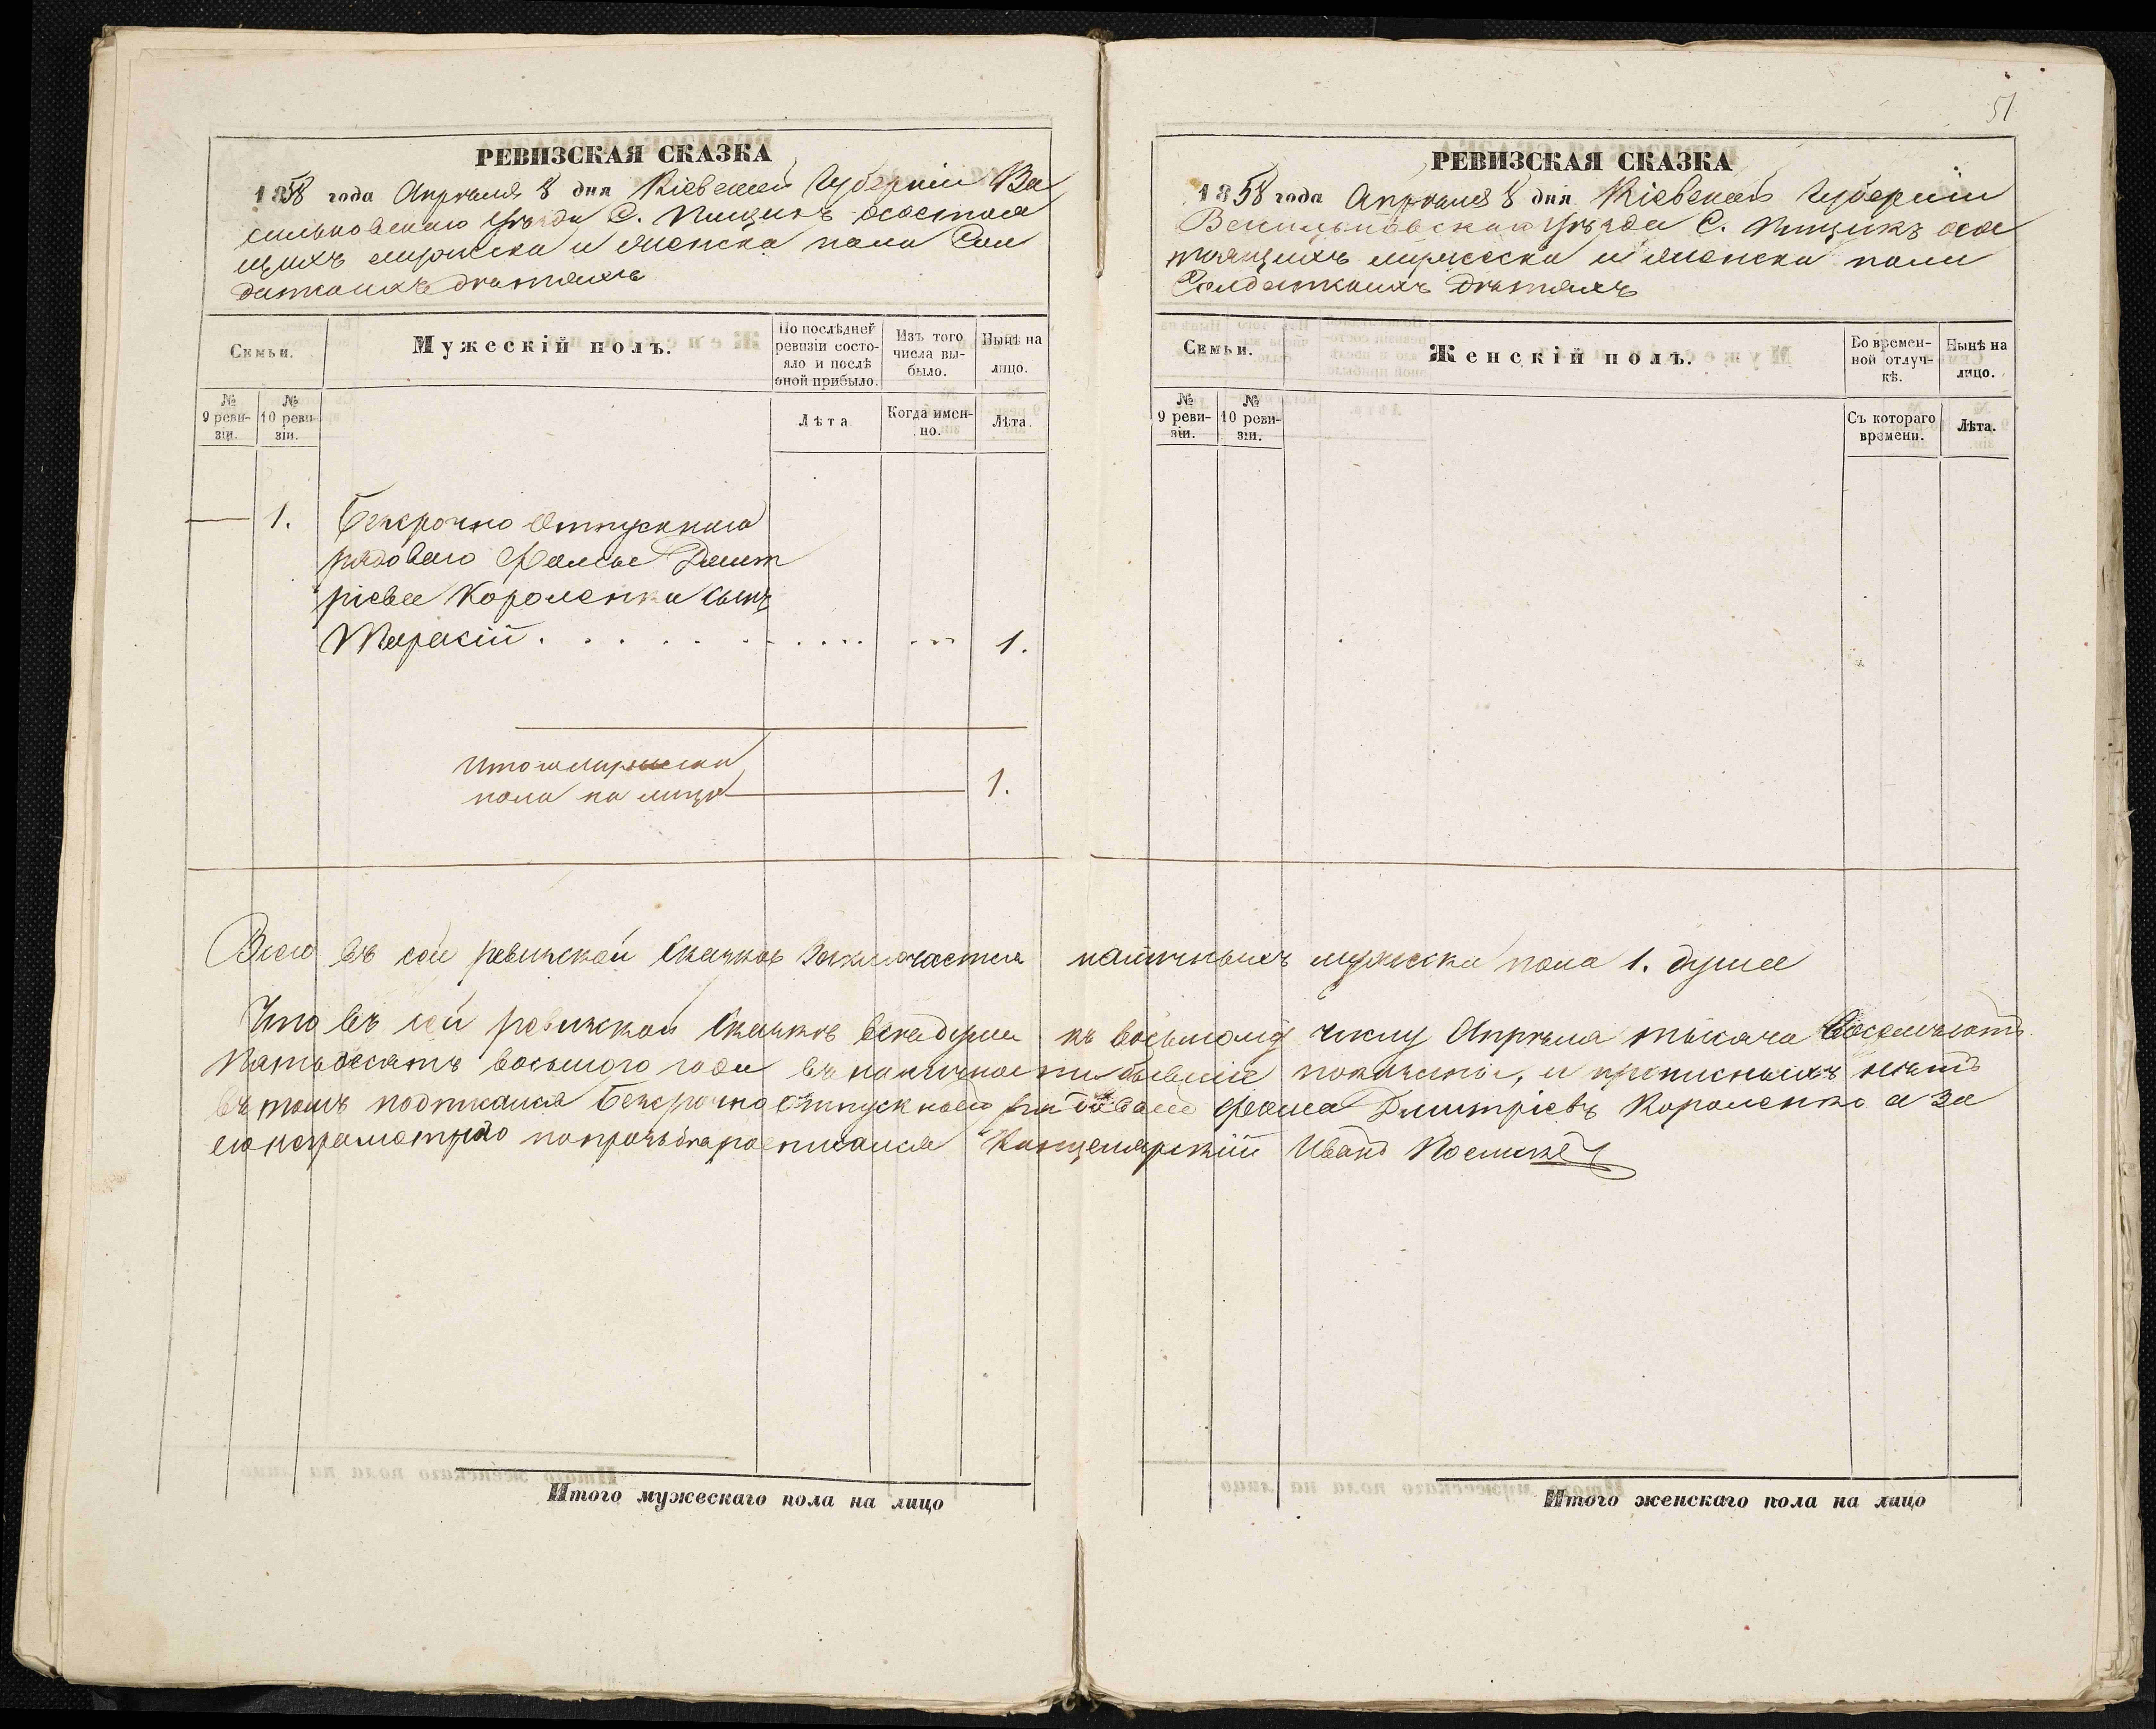 51
РЕВИЗСКАЯ СКАЗКА
1858 года Апрѣля 8 дня Кіевской Губерніи Ва
сильковскаго Уѣзда С. Пищикъ о состоя
щихъ мужеска и женска пола Сол
датскихъ дѣтяхъ
Семьи.
Мужескій полъ.
По послѣдней ревизіи состо-
яло и послѣ оной прибыло.
Изъ того числа вы-
было.
Нынѣ на лицо.
№ 9 реви-
зіи.
№ 10 реви-
зіи.
Лѣта
Когда имен-
но.
Лѣта.
1. Безсрочно Отпускнаго
рядоваго Фомы Дмит
ріева Короленка сынъ
1.
Итого мужеска
пола на лицо 1.
Итого мужескаго пола на лицо
РЕВИЗСКАЯ СКАЗКА
1858 года Апрѣля 8 дня Кіевской Губерніи
Васильковскаго Уѣзда С. Пищикъ о сос
тоящихъ мужеска и женска пола
Солдатскихъ дѣтяхъ
Семьи.
Женскій полъ.
Во времен-
ной отлуч-
кѣ.
Нынѣ на лицо.
№ 9 реви-
зіи.
№ 10 реви-
зіи.
Съ котораго времени.
Лѣта.
Всего въ сей ревизской Сказкѣ Заключается наличныхъ мужеска пола 1. душа
Что въ сей ревизской Сказкѣ всѣ души къ восьмому числу Апрѣля тысяча Восемьсотъ
Пятьдесятъ восьмого года въ наличности бывшіе показаны, и прописныхъ нѣтъ
въ томъ подписался Безсрочно Отпускной рядовой Фома Дмитріевъ Короленко а за
его неграмотного по прозьбѣ росписался Канцелярскій Иванъ
Итого женскаго пола на лицо